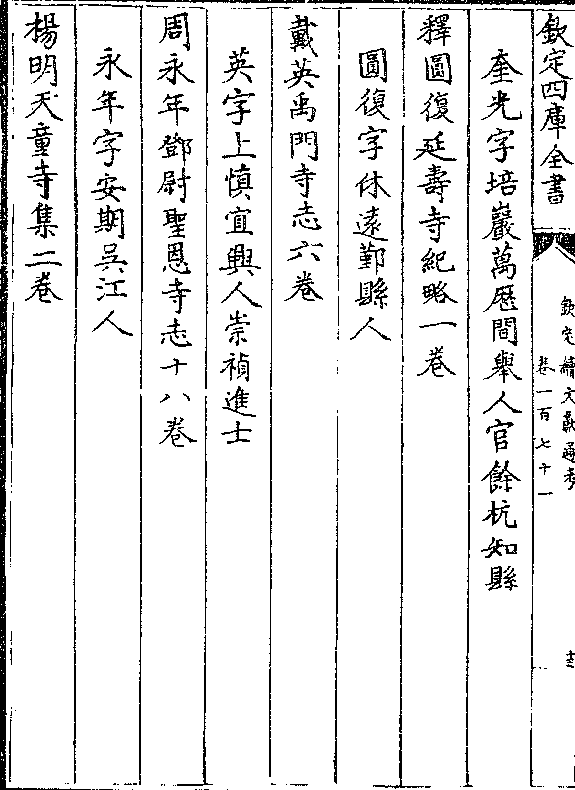 欽定四庫全書
欽定續文獻通考
卷一百七十一
奎光字培巖萬厯間舉人官餘杭知縣
釋圓復延壽寺紀略一卷
圓復字休遠鄞縣人
戴英禹門寺志六卷
英字上慎宜興人崇禎進士
周永年鄧尉聖恩寺志十八卷
永年字安期吳江人
楊明天童寺集二卷